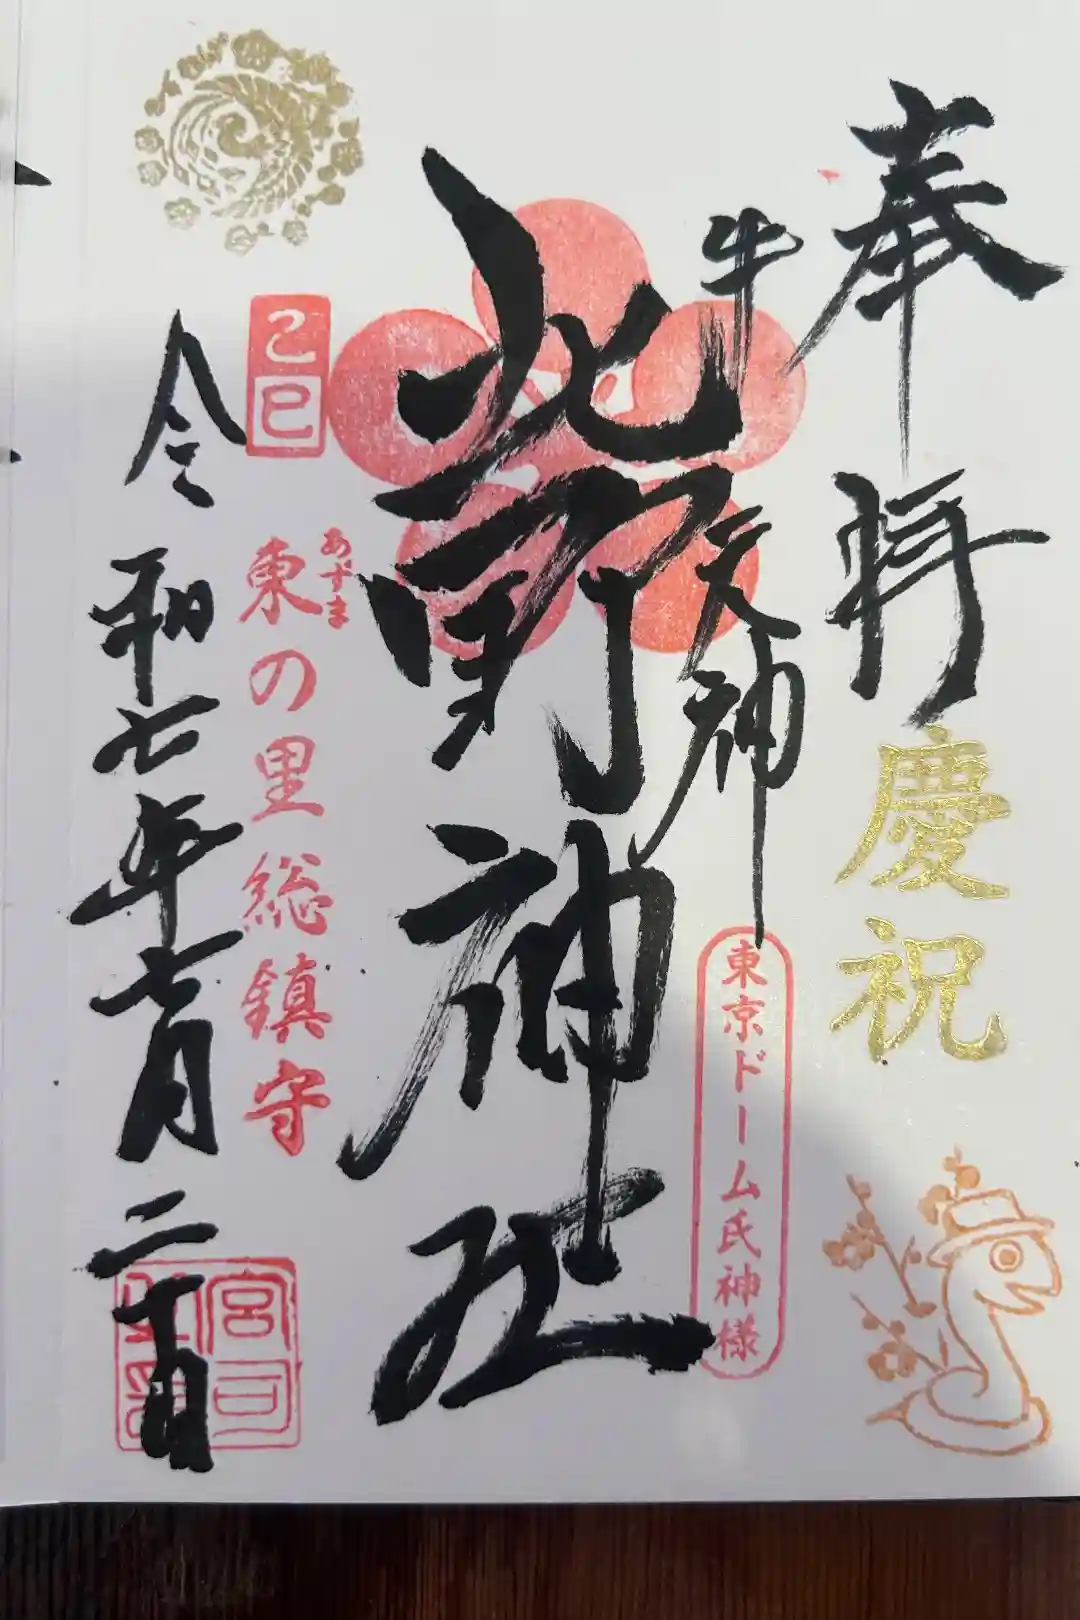 奉拝
慶祝
牛天神
東京ドーム氏神様
北野神社
あずま
東の里総鎮守
乙巳
令和七年七月二十日
宮司